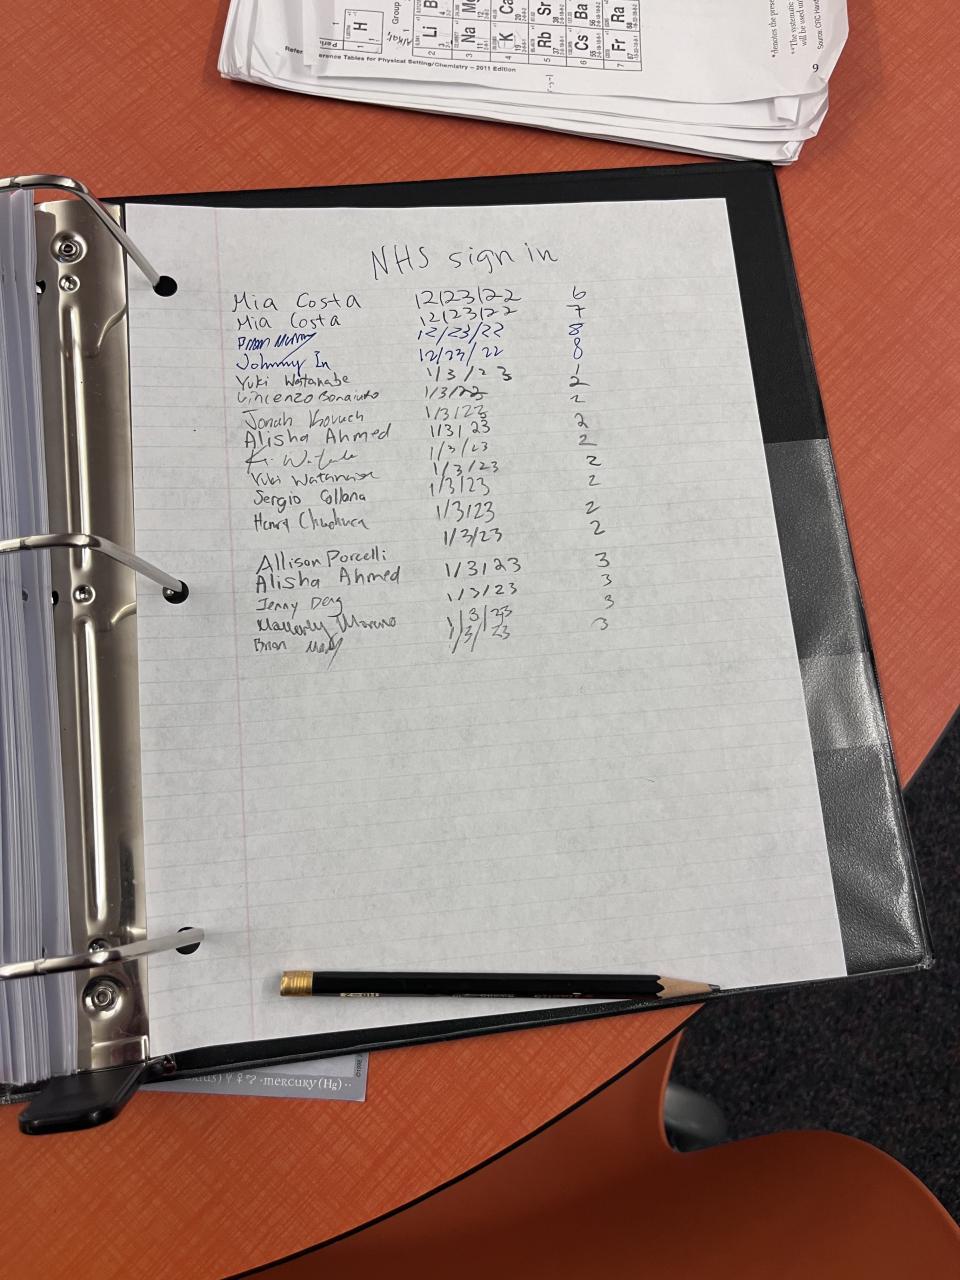 Group
1
H
Li
Na
K
Rb
Cs
Fr
B
Ca
Sr
Ba
Ra
2
3
4
5
6
7
Reference Tables for Physical Setting/Chemistry – 2011 Edition
9
NHS sign in
Mia Costa 12/23/22 6
Mia Costa 12/23/22 7
Brian 12/23/22 8
Johnny In 12/23/22 8
Yuki Watanabe 1/3/23 1
Vincenzo Bonaiuto 1/3/22 2
Jonah 1/3/23 2
Alisha Ahmed 1/3/23 2
1/3/23 2
Yuki Watanabe 1/3/23 2
Sergio Collana 1/3/23 2
Henry 1/3/23 2
1/3/23 2
Allison Porcelli
Alisha Ahmed 1/3/23 3
Jenny Deng 1/3/23 3
Moreno 1/3/23 3
Brian 1/3/23 3
mercury (Hg)